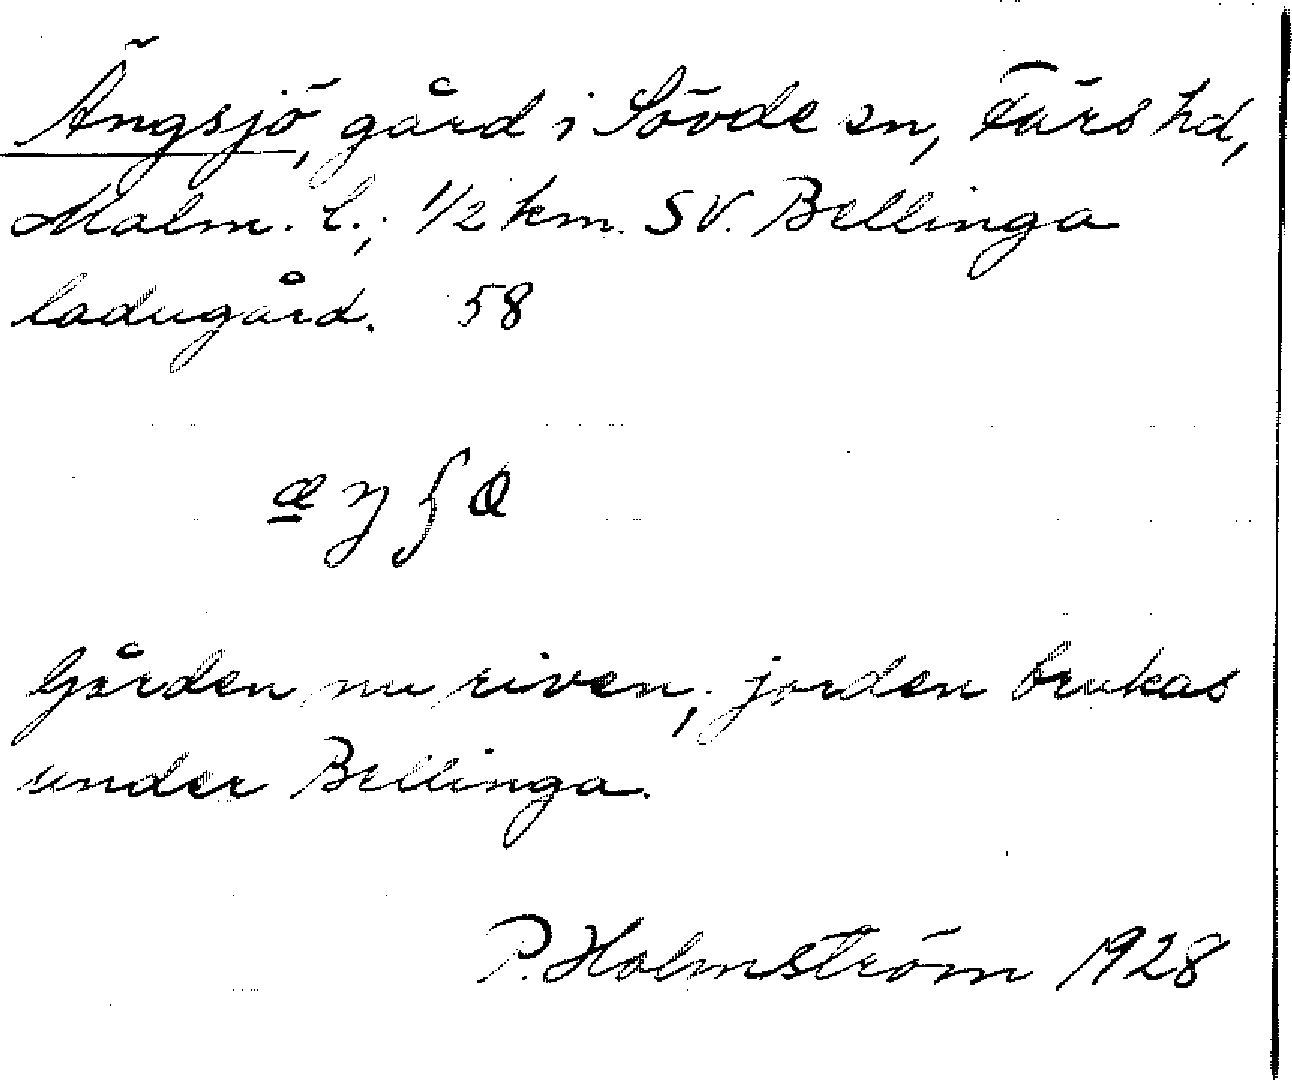 Ängsjö, gård i Sövde sn, Färs hd,
Malm. l.; 1/2 km. SV. Bellinga
ladugård. 58
Gården nu riven, jorden brukas
under Bellinga.
P. Holmström 1928